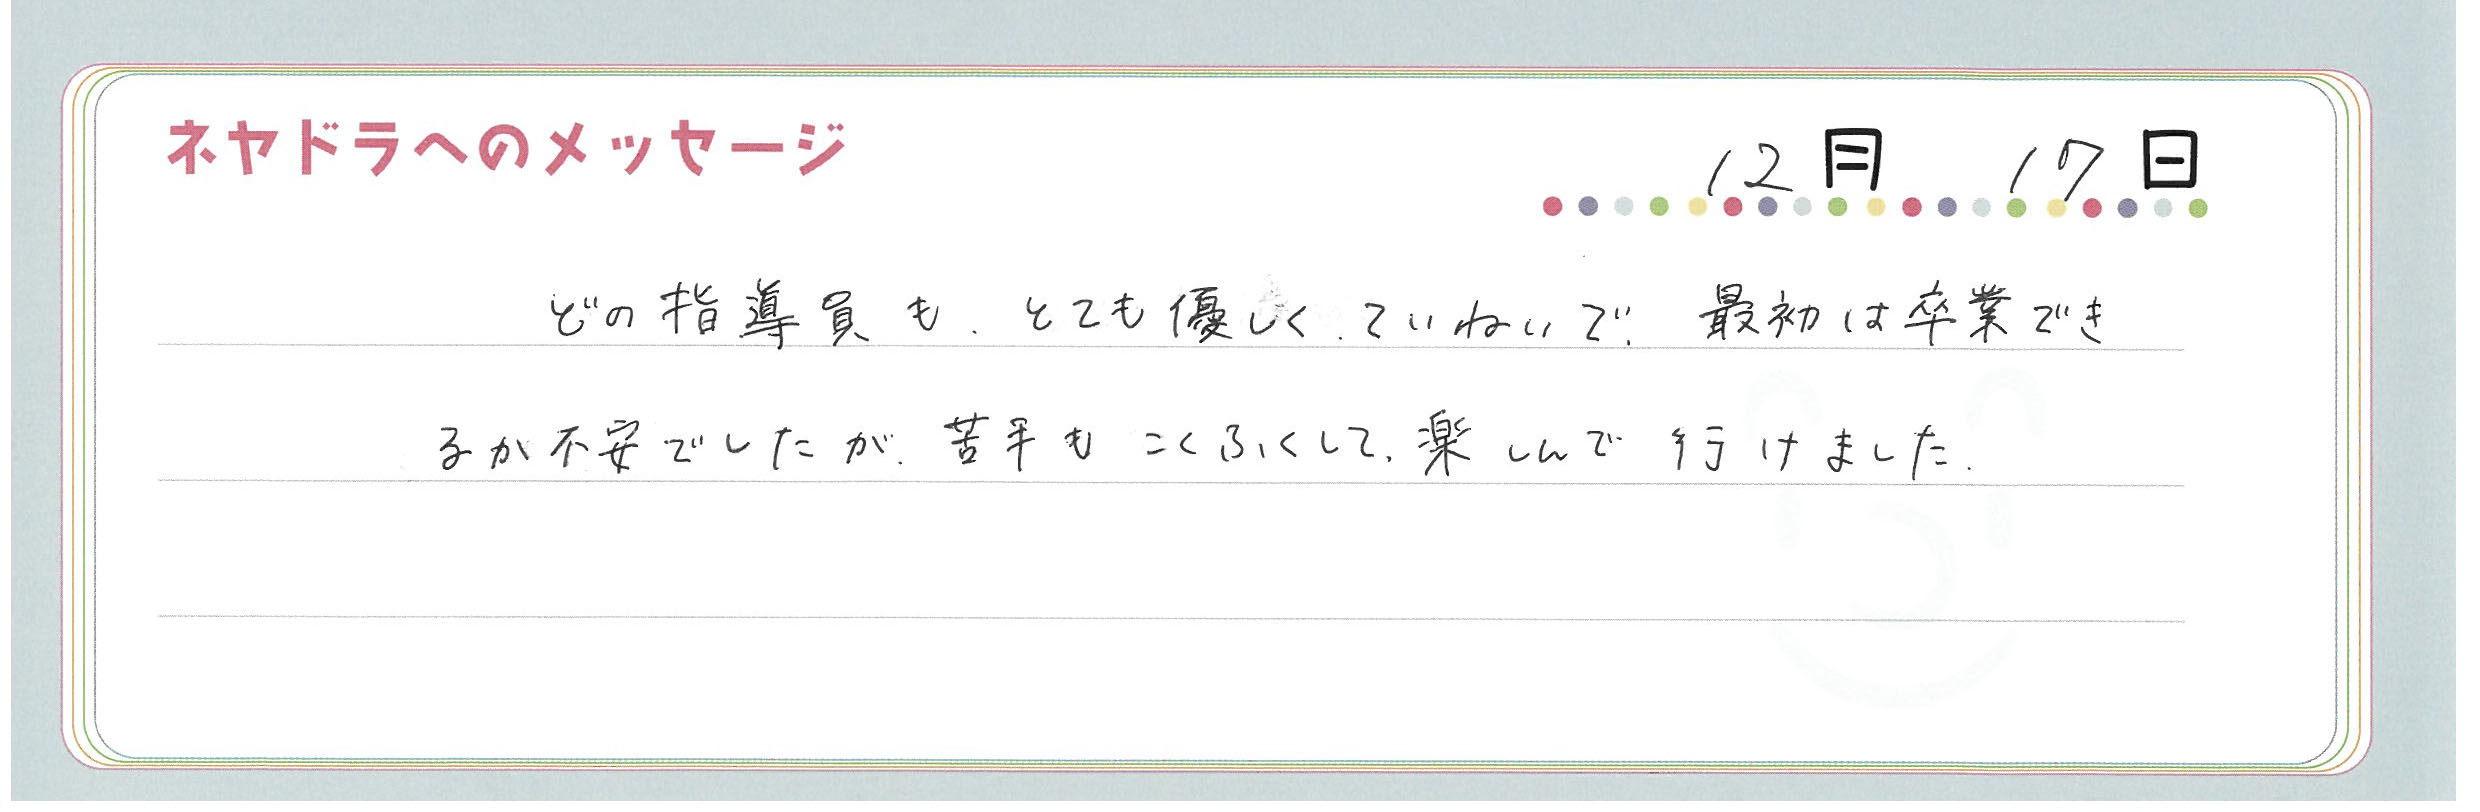 ネヤドラへのメッセージ
12月 17日
どの指導員も、とても優しく、ていねいで、最初は卒業でき
るか不安でしたが、苦手もこくふくして、楽しんで行けました。